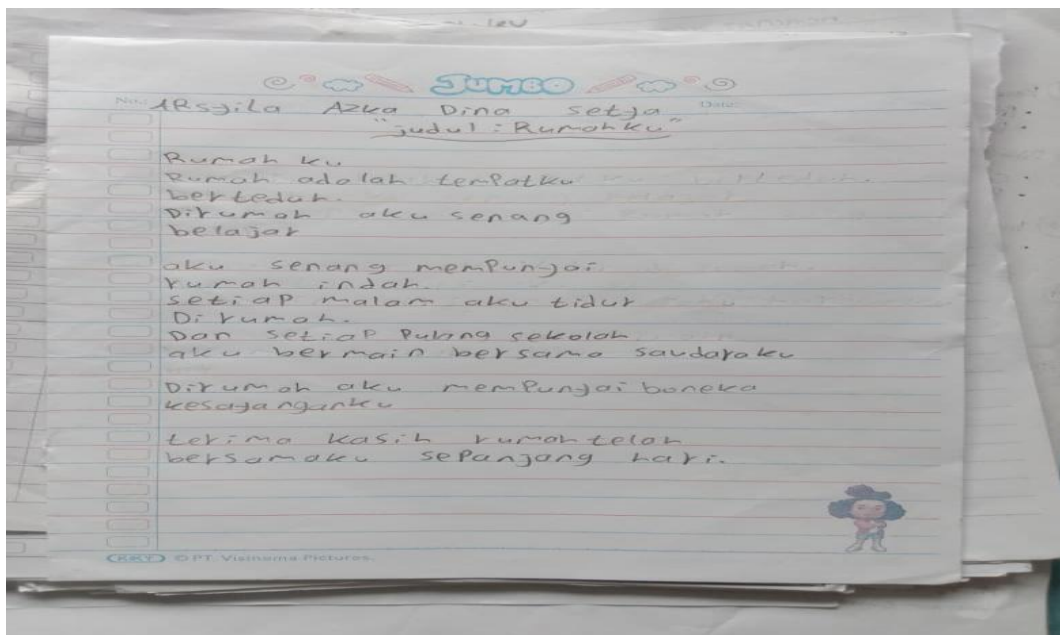 JUMBO
No.: ARsyila Azka Dina Setya Date:
"judul : Rumahku"
Rumah ku
Rumah adalah temPatku
berteduh.
Dirumah aku senang
belajar
aku senang memPunyai
rumah indah.
setiaP malam aku tidur
Di rumah.
Dan setiaP Pulang sekolah
aku bermain bersama saudaraku
Dirumah aku memPunyai boneka
kesayanganku
terima kasih rumah telah
bersamaku sePanjang hari.
KKY © PT. Visinema Pictures.